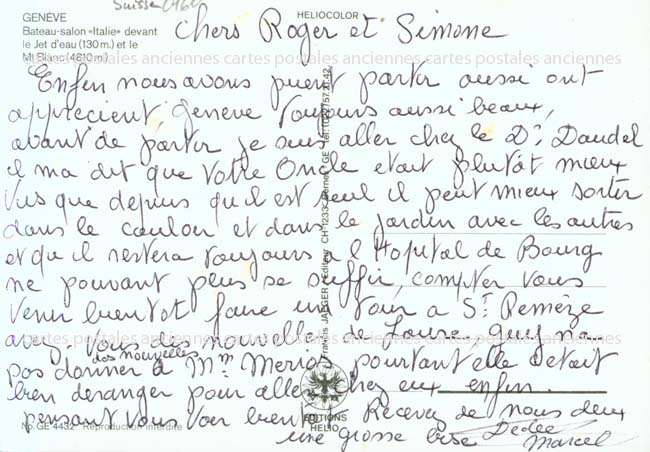 Suisse
GENÈVE
Bateau-salon «Italie» devant
le Jet d'eau (130 m.) et le
Mt Blanc (4810 m)
HELIOCOLOR
Chers Roger et Simone
Enfin nous avons puent partir aussi ont
apprecient geneve toujours aussi beaux,
avant de partir je suis aller chez le Dr. Daudel
il ma dit que votre Oncle etait plutôt mieux
vus que depuis qu'il est seul il peut mieux sortir
dans le couloir et dans le jardin avec les autres
et qu il restera toujours a l Hopital de Bourg
ne pouvant plus se suffir, compter vous
venir bientot faire une tour a St Remèze
avez vous des nouvelles de Louise quij na
pas donner dos nouvelles à Mm Merios pourtant elle detait
bien deranger pour aller chez eux enfin.
pensant vous voir bientot Recevez de nous deux
une grosse bise Dedee
Marcel
Francis JAEGER - Editeur CH-1233 Bernex - GE Tel. (022) 757.21.42
EDITIONS
HELIO
No. GE 4432 Reproduction interdite
cartes postales anciennes cartes postales anciennes cartes postales anciennes
cartes postales anciennes cartes postales anciennes cartes postales anciennes